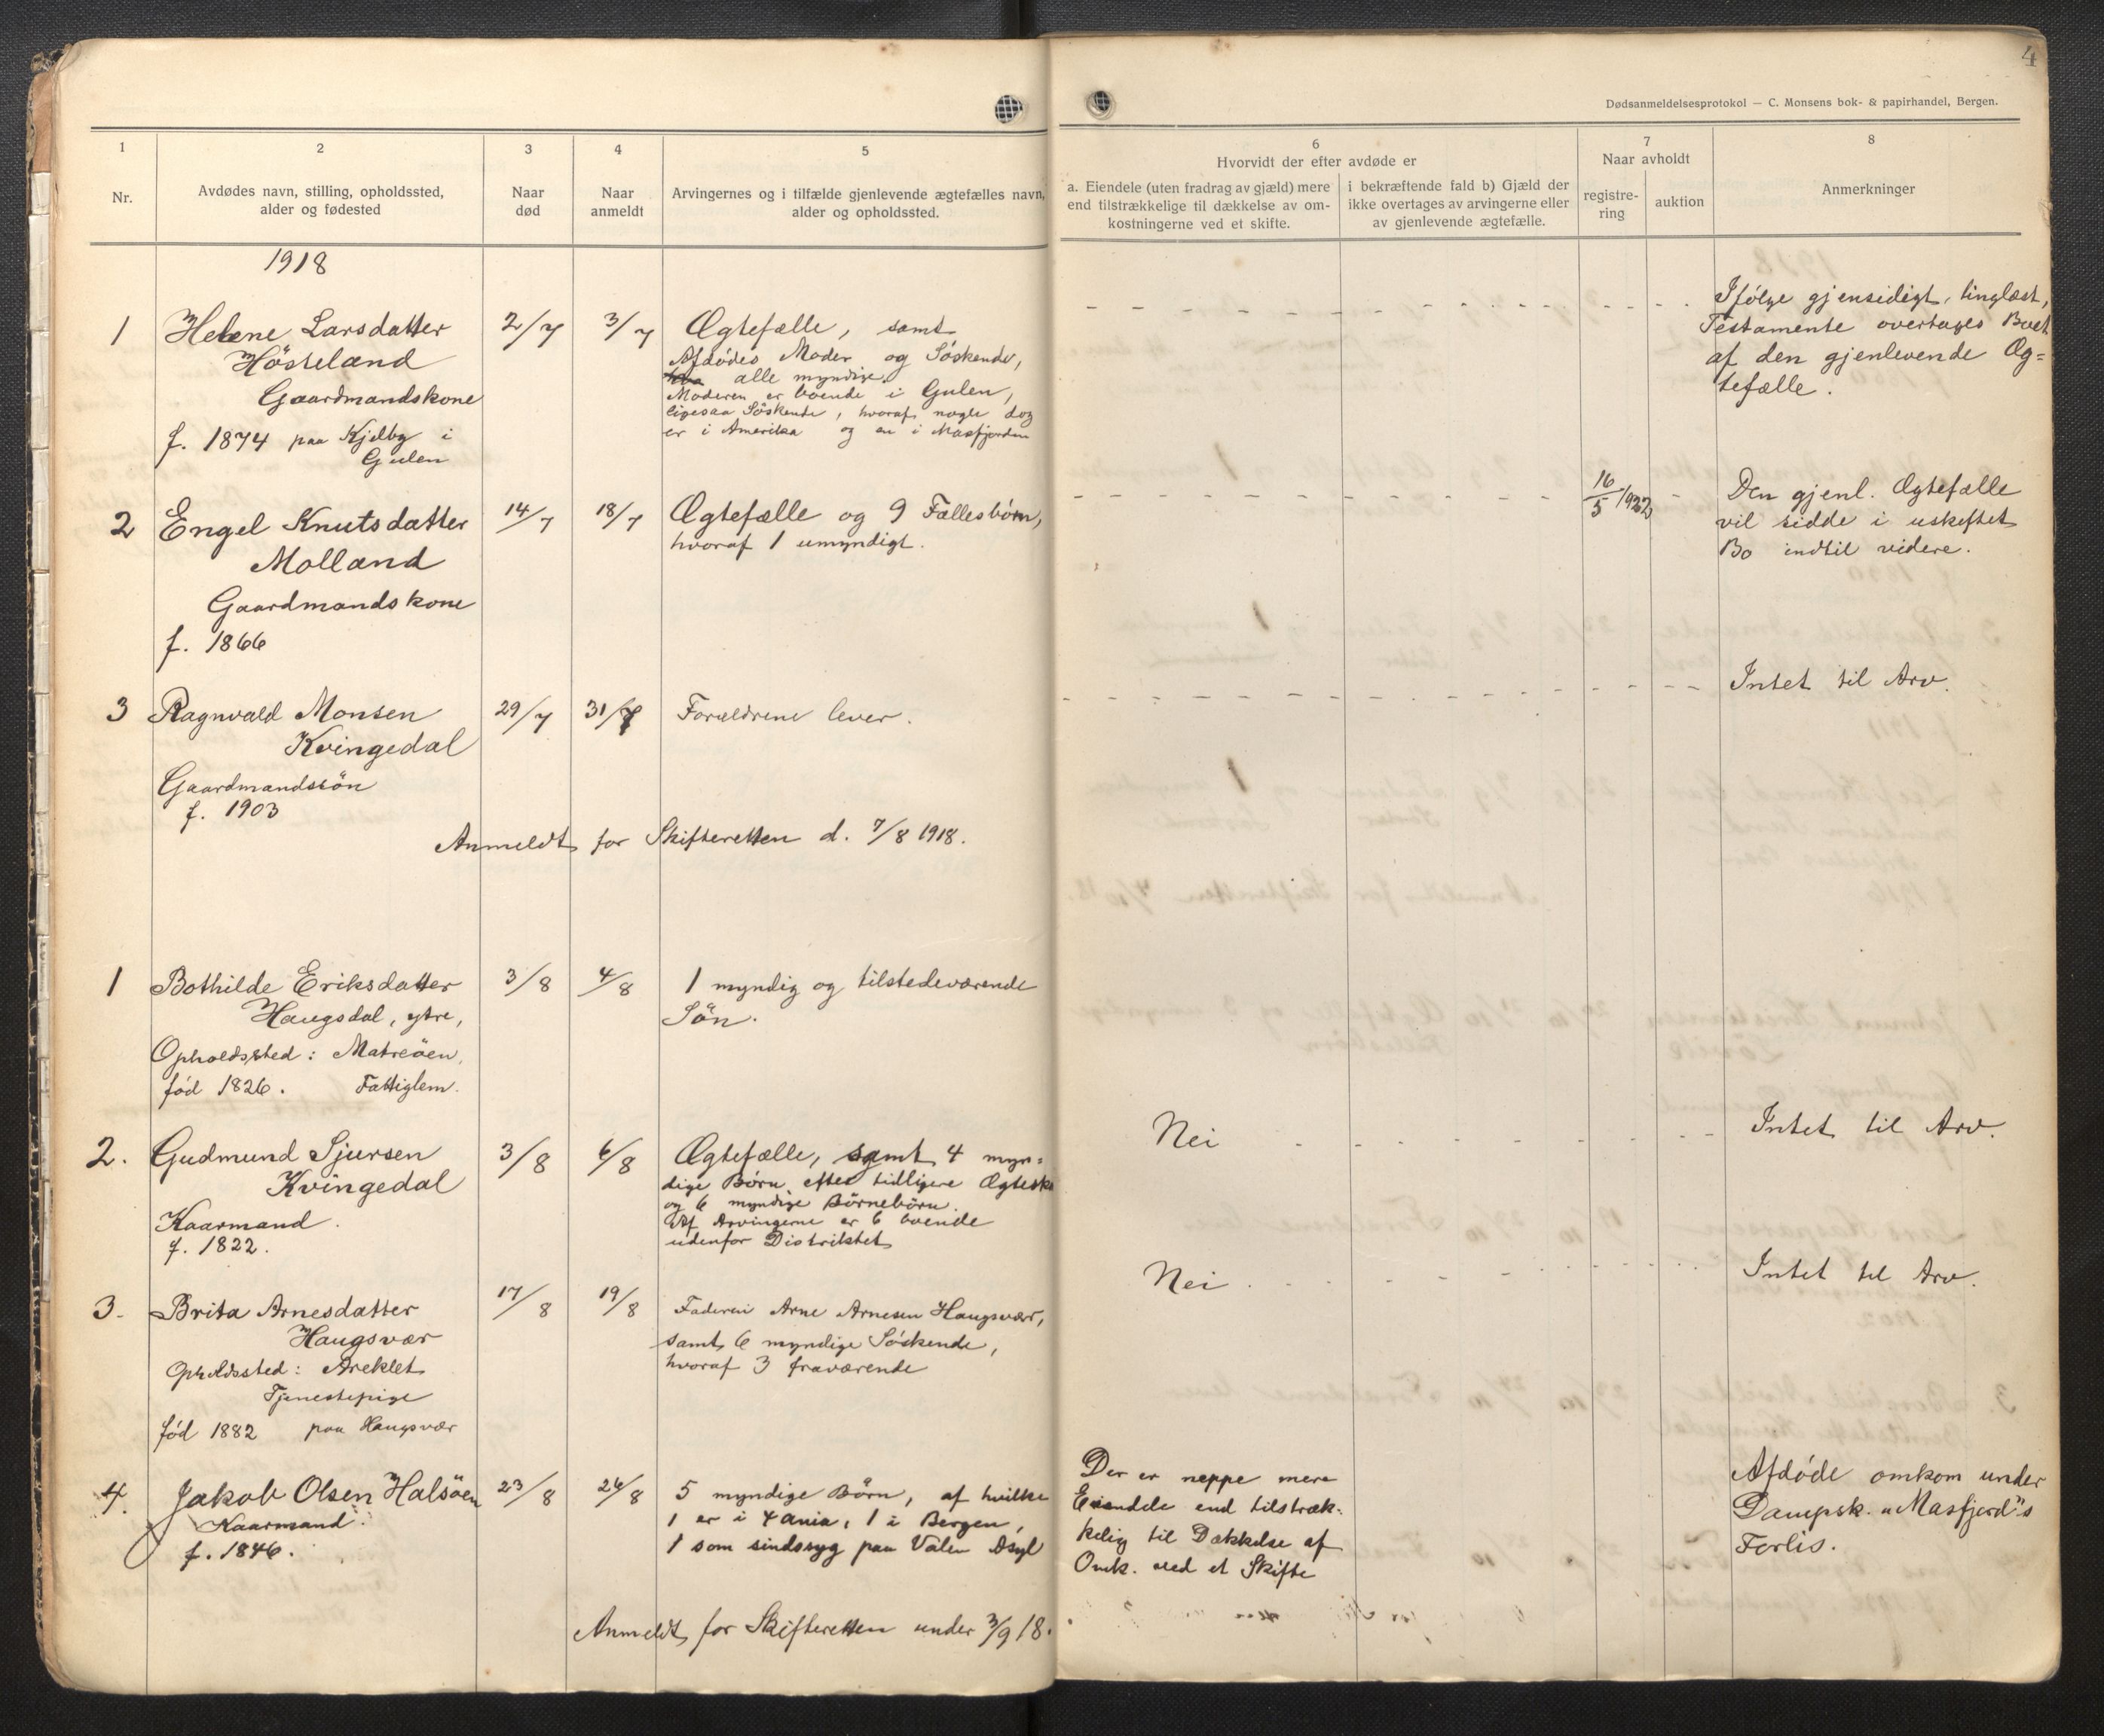 4
Dødsanmeldelsesprotokol — C. Monsens bok- & papirhandel, Bergen.
1
Nr.
2
Avdødes navn, stilling, opholdssted,
alder og fødested
3
Naar
død
4
Naar
anmeldt
5
Arvingernes og i tilfælde gjenlevende ægtefælles navn,
alder og opholdssted.
6
Hvorvidt der efter avdøde er
a. Eiendele (uten fradrag av gjæld) mere
end tilstrækkelige til dækkelse av om-
kostningerne ved et skifte.
i bekræftende fald b) Gjæld der
ikke overtages av arvingerne eller
av gjenlevende ægtefælle.
7
Naar avholdt
registre-
ring
auktion
8
Anmerkninger
1918
1
Helene Larsdatter
Hösteland
Gaardmandskone
f. 1874 paa Kjelby i
Gulen
2/7
3/7
Ægtefælle, samt
Afdødes Moder og Söskende,
alle myndige.
Moderen er boende i Gulen,
ligesaa Söskende, hvoraf nogle dog
er i Amerika og en i Masfjorden
Ifölge gjensidigt, tinglæst,
Testamente overtages Boet
af den gjenlevende Æg=
tefælle.
2
Engel Knutsdatter
Molland
Gaardmandskone
f. 1866
14/7
18/7
Ægtefælle og 9 Fællesbörn,
hvoraf 1 umyndigt.
16/5 1922
Den gjenl. Ægtefælle
vil sidde i uskiftet
Bo indtil videre.
3
Ragnvald Monsen
Kvingedal
Gaardmandssön
f. 1903
29/7
31/7
Forældrene lever.
Intet til Arv.
Anmeldt for Skifteretten d. 7/8 1918.
1
Bothilde Eriksdatter
Haugsdal, ytre,
Opholdssted: Matreöen,
fód 1826. Fattiglem.
3/8
4/8
1 myndig og tilstedeværende
Sön.
Nei
Intet til Arv.
2.
Gudmund Sjursen
Kvingedal
Kaarmand.
f. 1822.
3/8
6/8
Ægtefælle, samt 4 myn=
dige Börn efter tidligere Ægtesk
og 6 myndige Börnebörn.
Af Arvingerne er 6 boende
udenfor Distriktet
Nei
Intet til Arv.
3.
Brita Arnesdatter
Haugsvær
Opholdssted: Areklet
Tjenestepige
fód 1882 paa Haugsvær
17/8
19/8
Faderen Arne Arnesen Haugsvær,
samt 6 myndige Sóskende,
hvoraf 3 fraværende
4.
Jakob Olsen Halsöen
Kaarmand.
f. 1846.
23/8
26/8
5 myndige Börn, af hvilke
1 er i 1 i Bergen,
1 som sindssyg paa Valen Asyl
Der er neppe mere
Eiendele end tilstræk-
kelig til Dækkelse af
Omk. ved et Skifte
Afdóde omkom under
Dampsk. "Masfjord"s
Forlis.
Anmeldt for Skifteretten under 3/9 18.